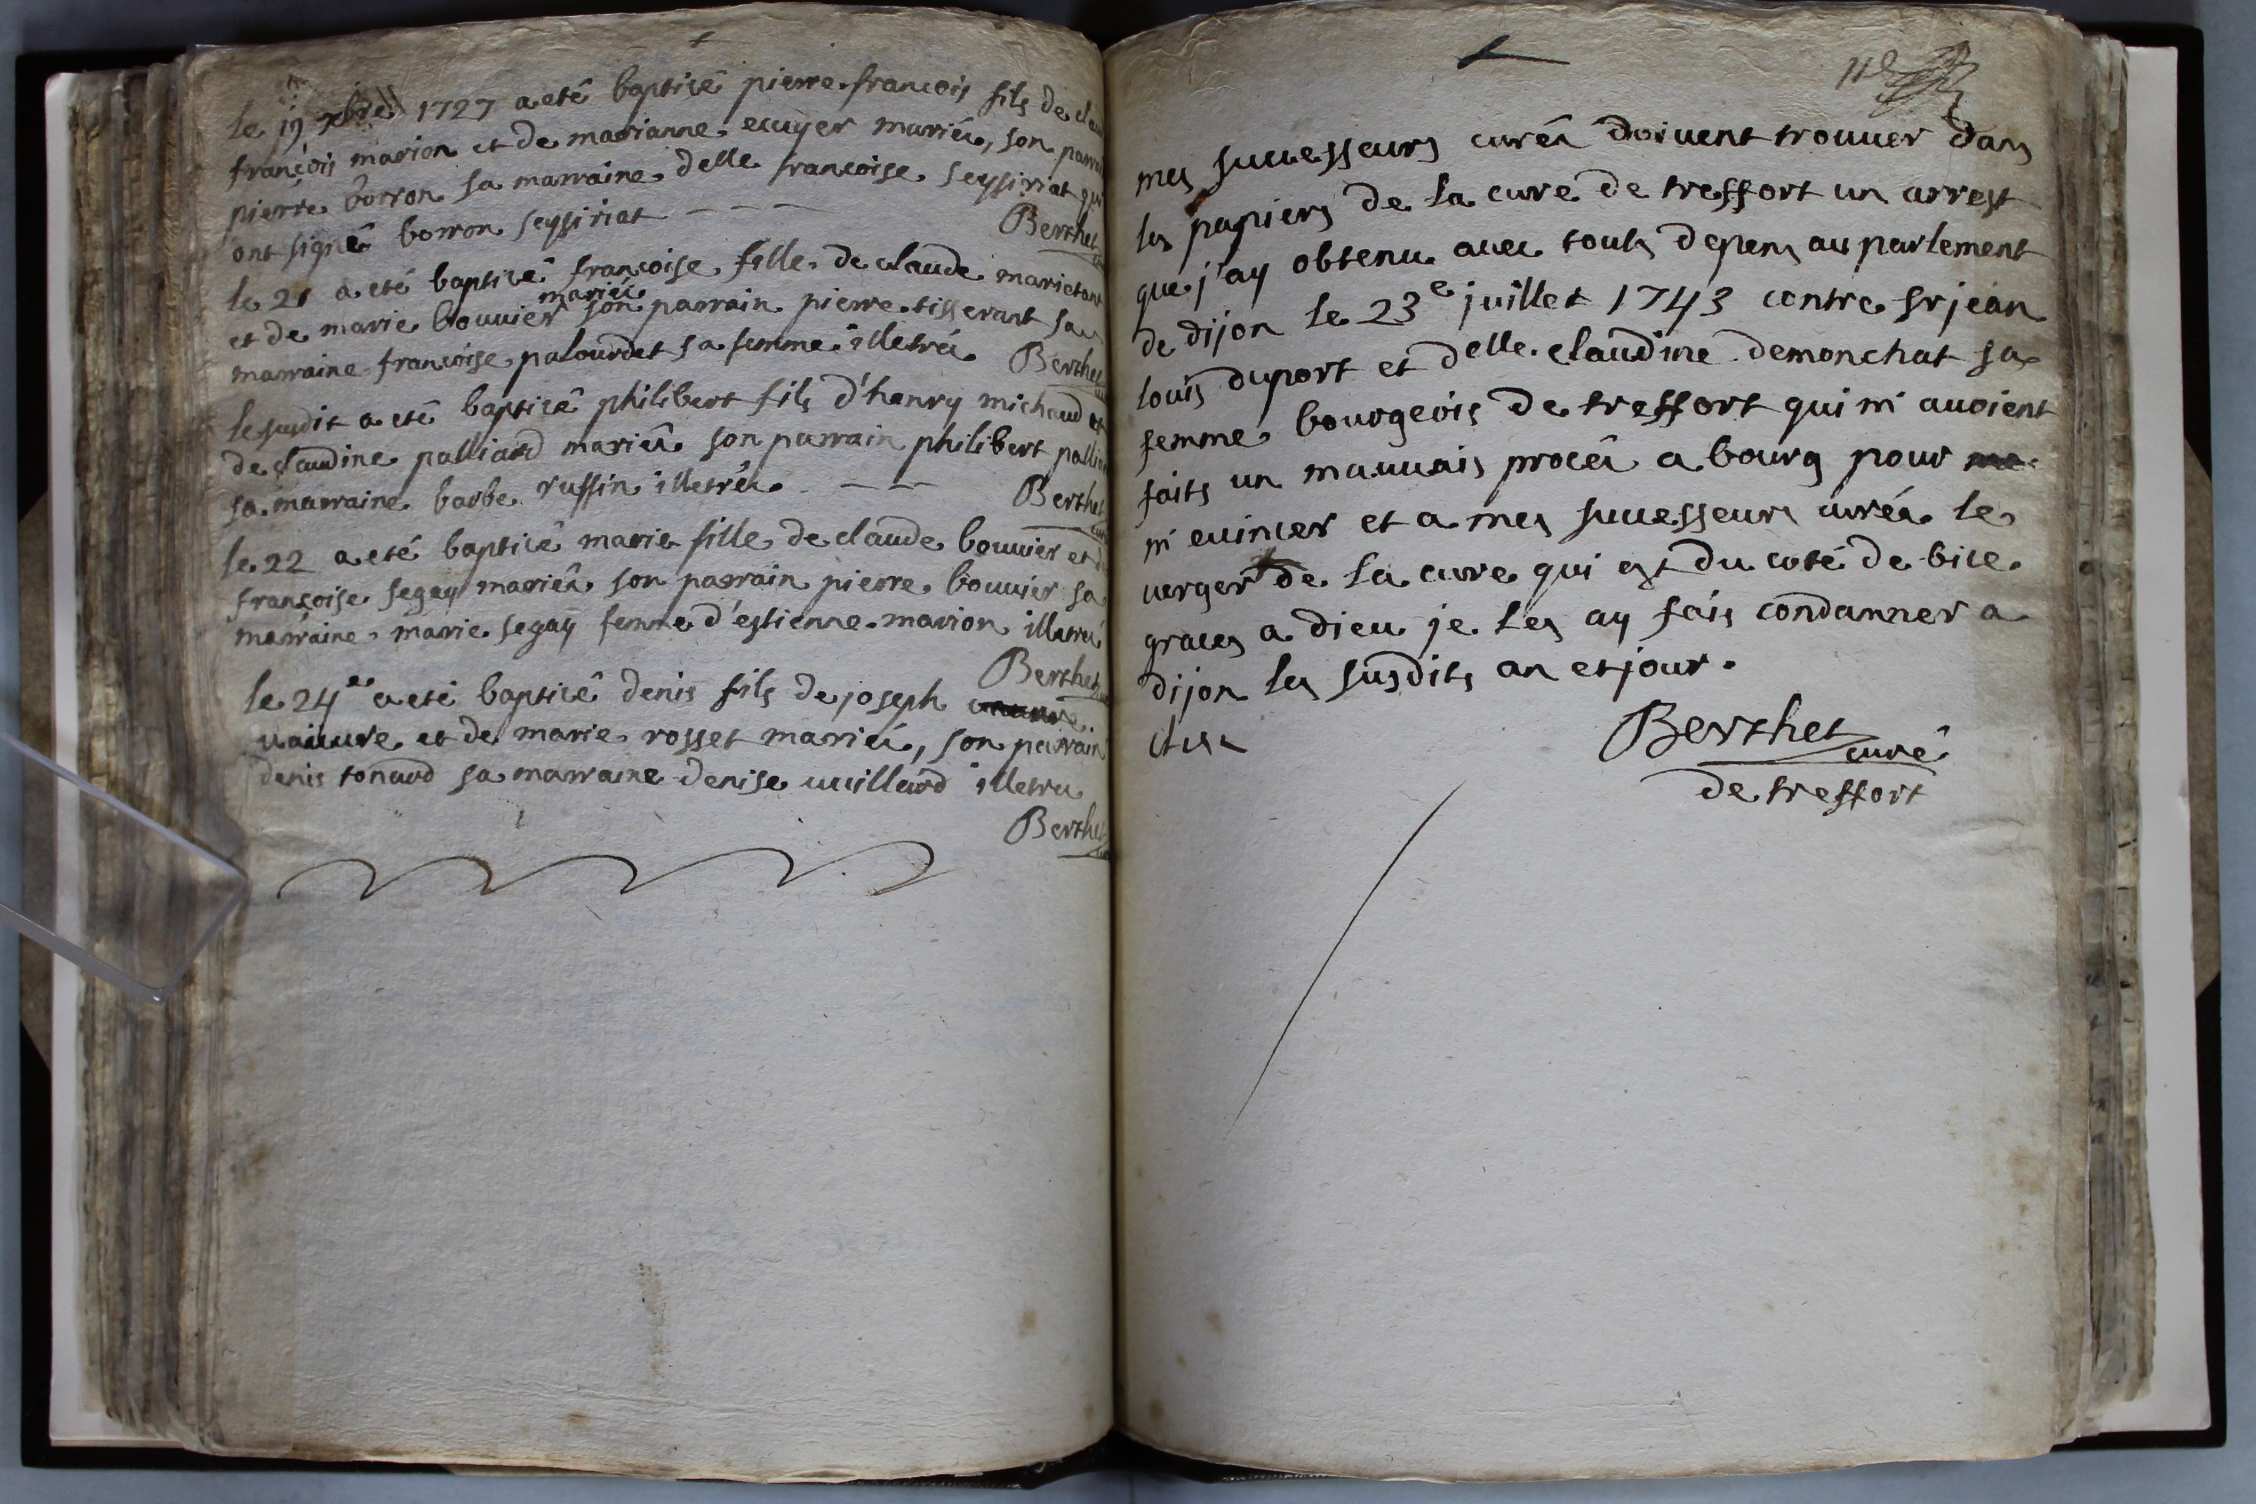 le 19 xbre 1727 a eté baptisé pierre françois fils de
françois marion et de marianne ecuyer mariés, son
pierre borron sa marraine delle francoise seysiriat qui
ont signé borron seysiriat
Berthet
le 21 a eté baptisé françoise fille de claude
et de marie bouvier mariés son parrain pierre tisserant sa
marraine françoise palourdet sa femme illetrés
Berthet
le susdit a eté baptisé philibert fils d'henry michaud et
de claudine palliard mariés son parrain philibert
sa marraine barbe ruffin illetrés
Berthet
le 22 a eté baptisé marie fille de claude bouvier et de
françoise segay mariés son parrain pierre bouvier sa
marraine marie segay femme d'estienne marion illetrés
Berthet
le 24e a eté baptisé denis fils de joseph
vaivvre et de marie rosset mariés, son parrain
denis tonard sa marraine denise vuillard illetrés
Berthet
mes successeurs curés doivent trouver dans
les papiers de la cure de treffort un arrest
que j'ay obtenu avec touts depens au parlement
de dijon le 23e juillet 1743 contre sr jean
louis duport et delle claudine demonchat sa
femme bourgeois de treffort qui m'avoient
faits un mauvais procès a bourg pour
m'evincer et a mes successeurs curés le
verger de la cure qui est du coté de bise
graces a dieu je les ay fais condanner a
dijon les susdits an et jour.
Berthet curé
de treffort